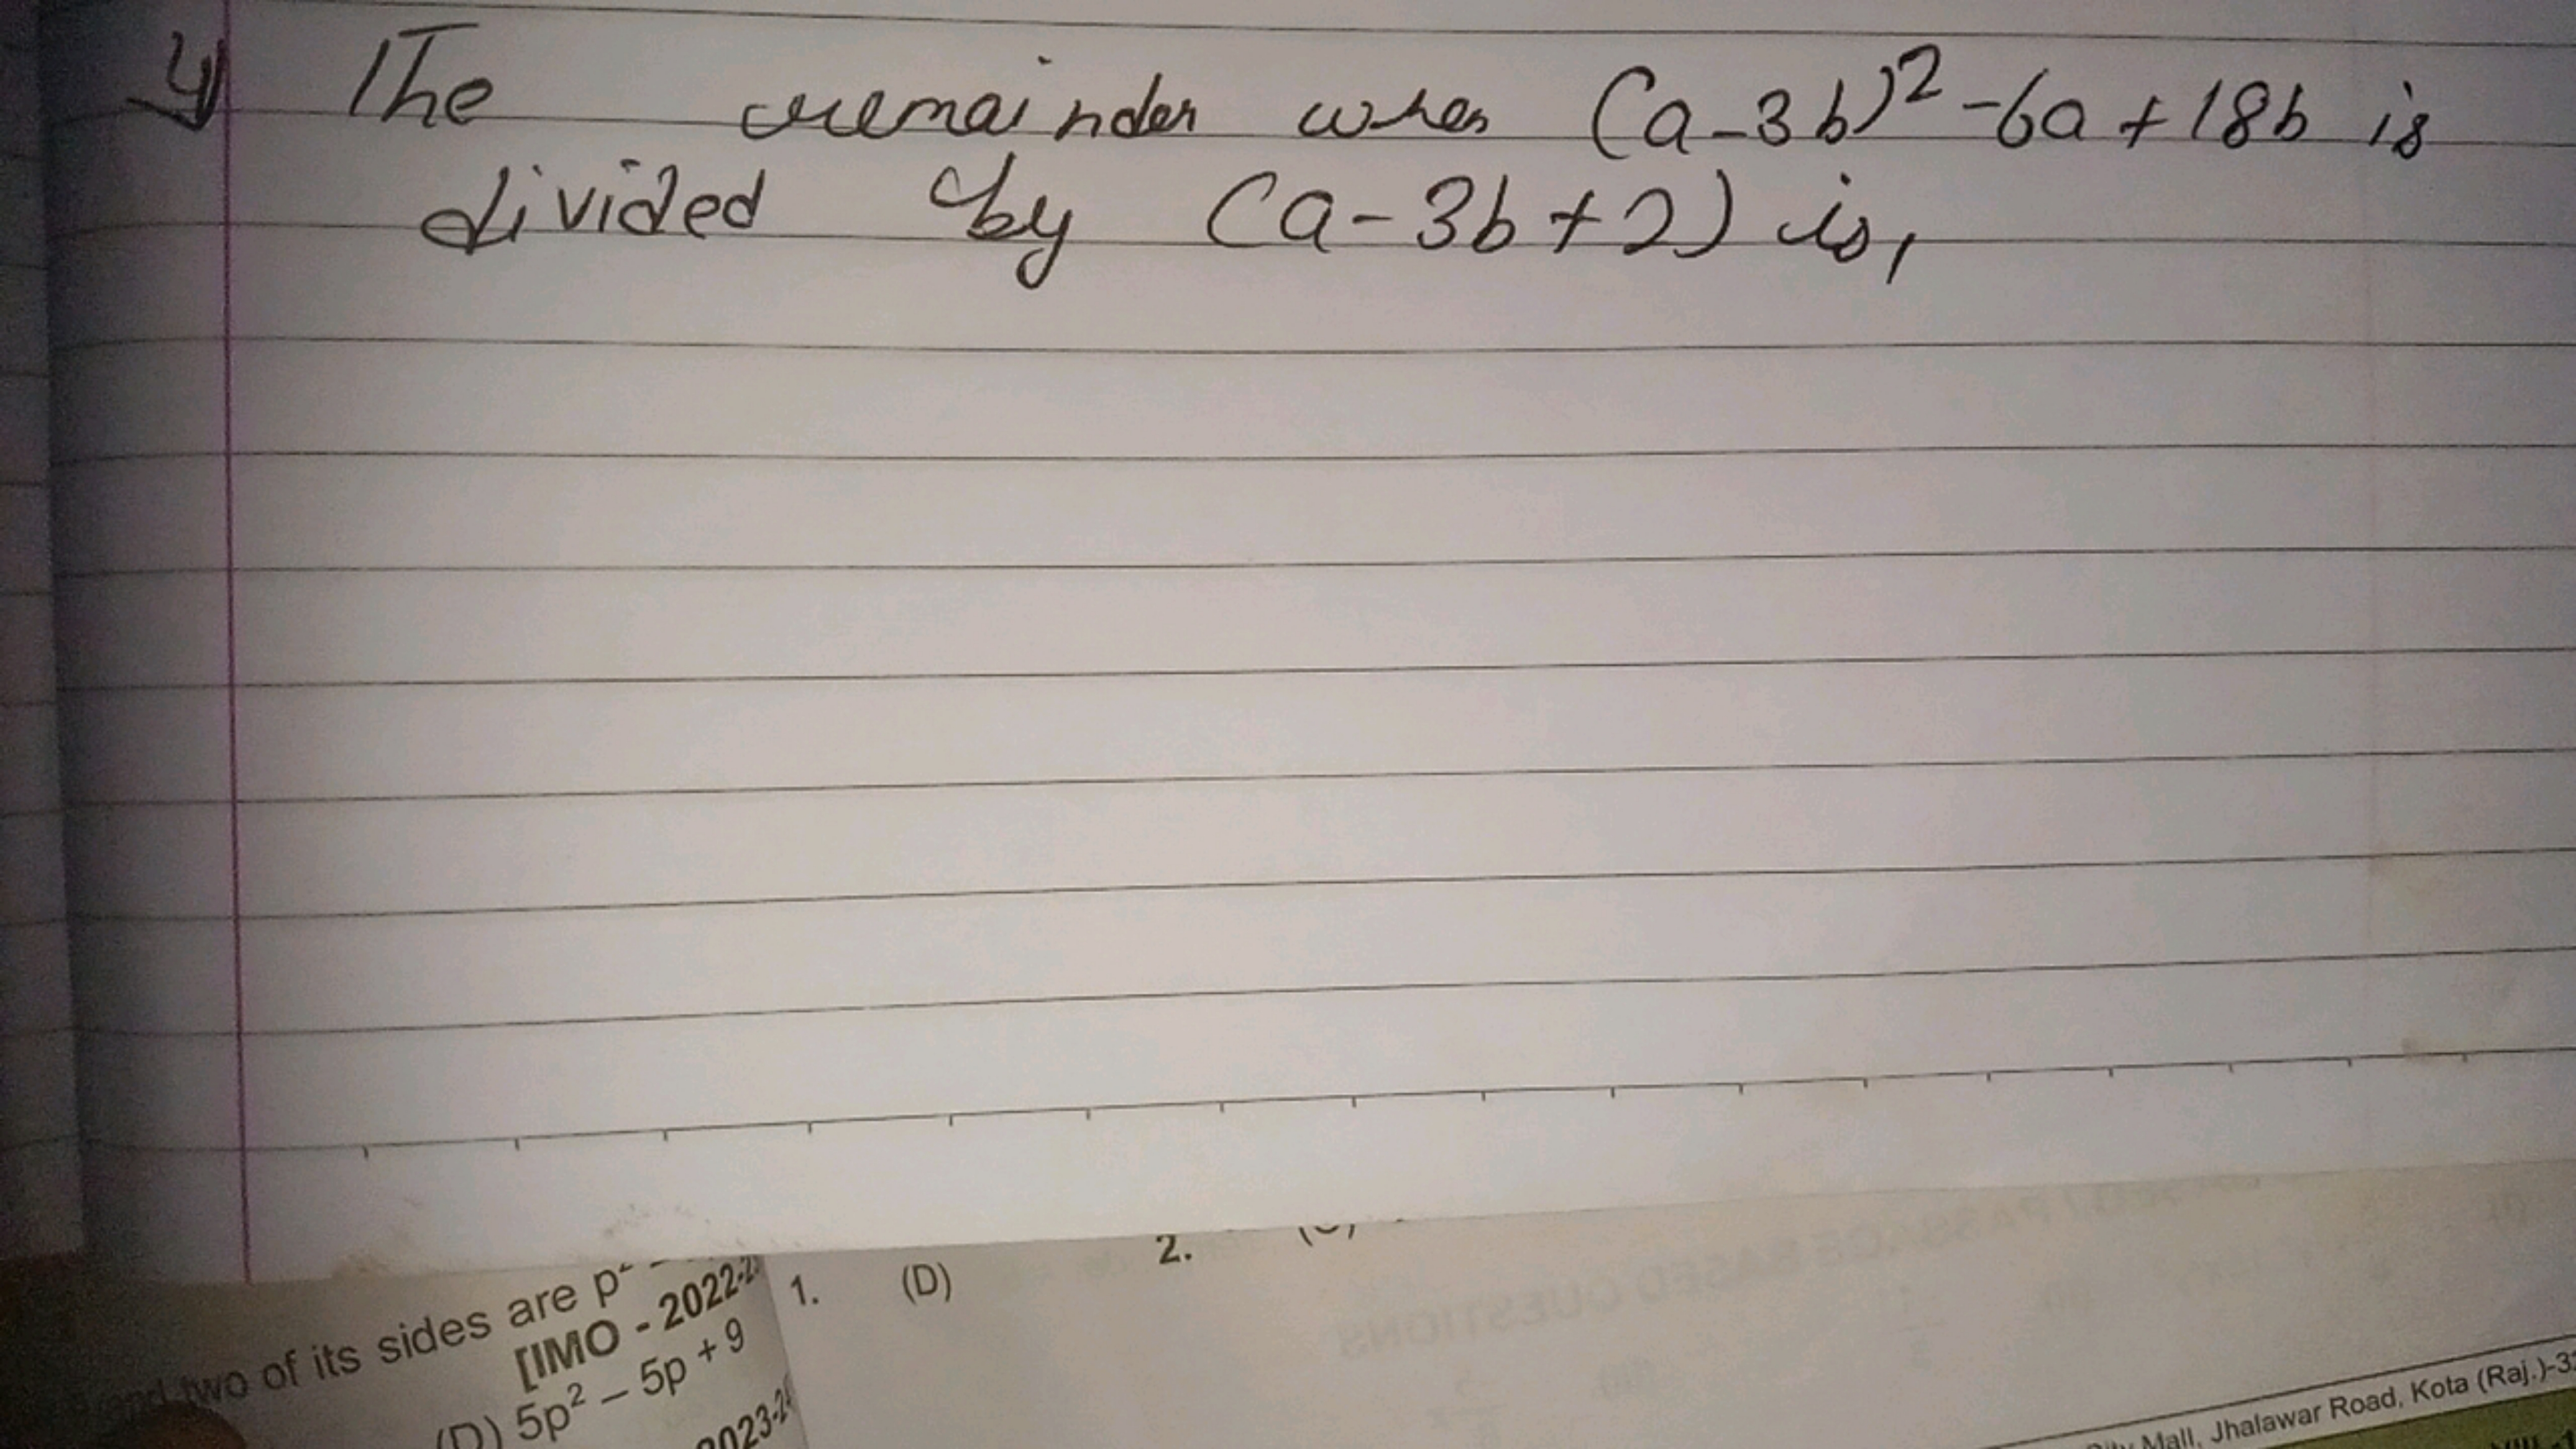 4) The remainder when (a-3b)² -6a + 18b is
divided by (a-3b+2) is,
and two of its sides are p²
[IMO - 2022-2
(D) 5p² – 5p + 9
2023-2
1. (D)
2.
Mall, Jhalawar Road, Kota (Raj.)-3